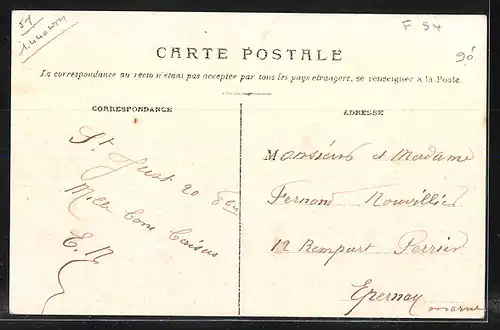 51
F 54
CARTE POSTALE
La correspondance au recto n'étant pas acceptée par tous les pays étrangers, se renseigner à la Poste
CORRESPONDANCE
St Just 20 8bre
Mille bons baisers
E. R
ADRESSE
Monsieur et Madame
Fernand Rouvillier
12 Rempart Perrier
Epernay
marne